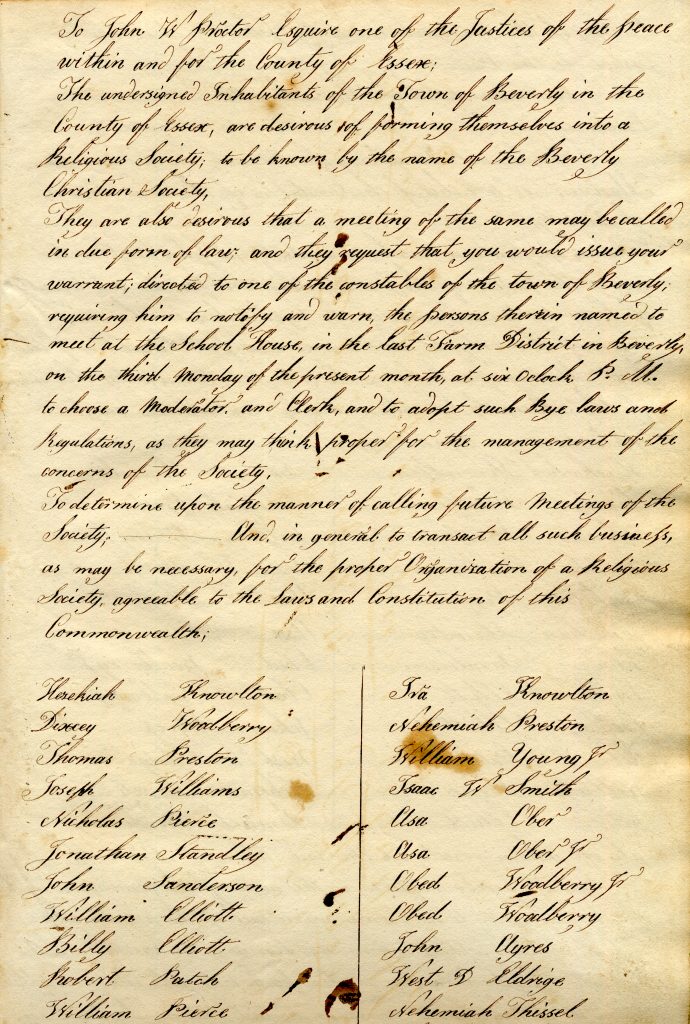 To John W Proctor Esquire one of the Justices of the peace
within and for the County of Essex;
The undersigned Inhabitants of the Town of Beverly in the
County of Essex, are desirous of forming themselves into a
Religious Society; to be known by the name of the Beverly
Christian Society,
They are also desirous that a meeting of the same may be called
in due form of law; and they request that you would issue your
warrant; directed to one of the constables of the town of Beverly;
requiring him to notify and warn, the persons therein named to
meet at the School House, in the last Farm District in Beverly,
on the third Monday of the present month, at six Oclock P. M.
to choose a Moderator, and Clerk, and to adopt such Bye laws and
Regulations, as they may think proper for the management of the
concerns of the Society,
To determine upon the manner of calling future Meetings of the
Society; And, in general to transact all such business,
as may be necessary, for the proper Organization of a Religious
Society, agreeable to the Laws and Constitution of this
Commonwealth;
Hezekiah Knowlton
Dixcey Woodberry
Thomas Preston
Joseph Williams
Nicholas Pierce
Jonathan Standley
John Sanderson
William Elliott
Billy Elliott
Robert Patch
William Pierce
Ira Knowlton
Nehemiah Preston
William Young Jr
Isaac W Smith
Asa Ober
Asa Ober Jr
Obed Woodberry Jr
Obed Woodberry
John Ayres
West D Eldrige
Nehemiah Thissel